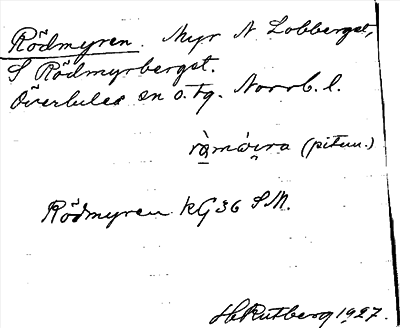 Rödmyren. Myr N Lobbergst,
S Rödmyrbergst.
Överlulea sn o. tg. Norrb. l.
ràmón̥ra (pitem.)
Rödmyren KG 36 S.M.
H Rutberg 1927.